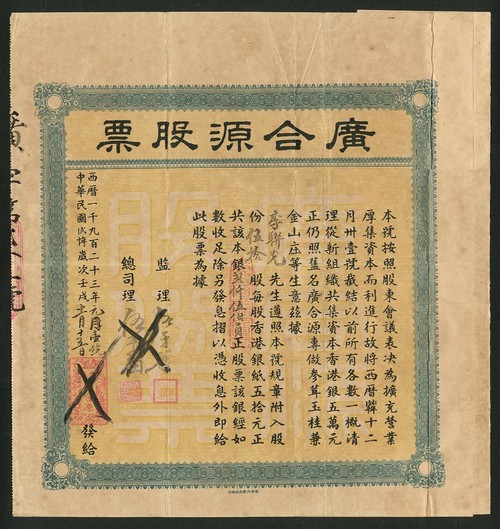 廣合源股票
本號按照股東會議表決為擴充營業
厚集資本而利進行故將西曆十二
月卅壹號截結以前所有各數一概清
理從新組織共集資本香港銀五萬元
正仍照舊名廣合源專做參茸玉桂兼
金山庄等生意茲據
李聯光 先生遵照本號規章附入股
份伍拾 股每股香港銀紙五拾元正
共該本銀貳仟伍佰員正股票該銀經如
數收足除另發息摺以憑收息外即給
此股票為據
監理
總司理
西曆一千九百二十三年元月壹號
中華民國 歲次壬戌十一月十五日
發給
廣字第 號